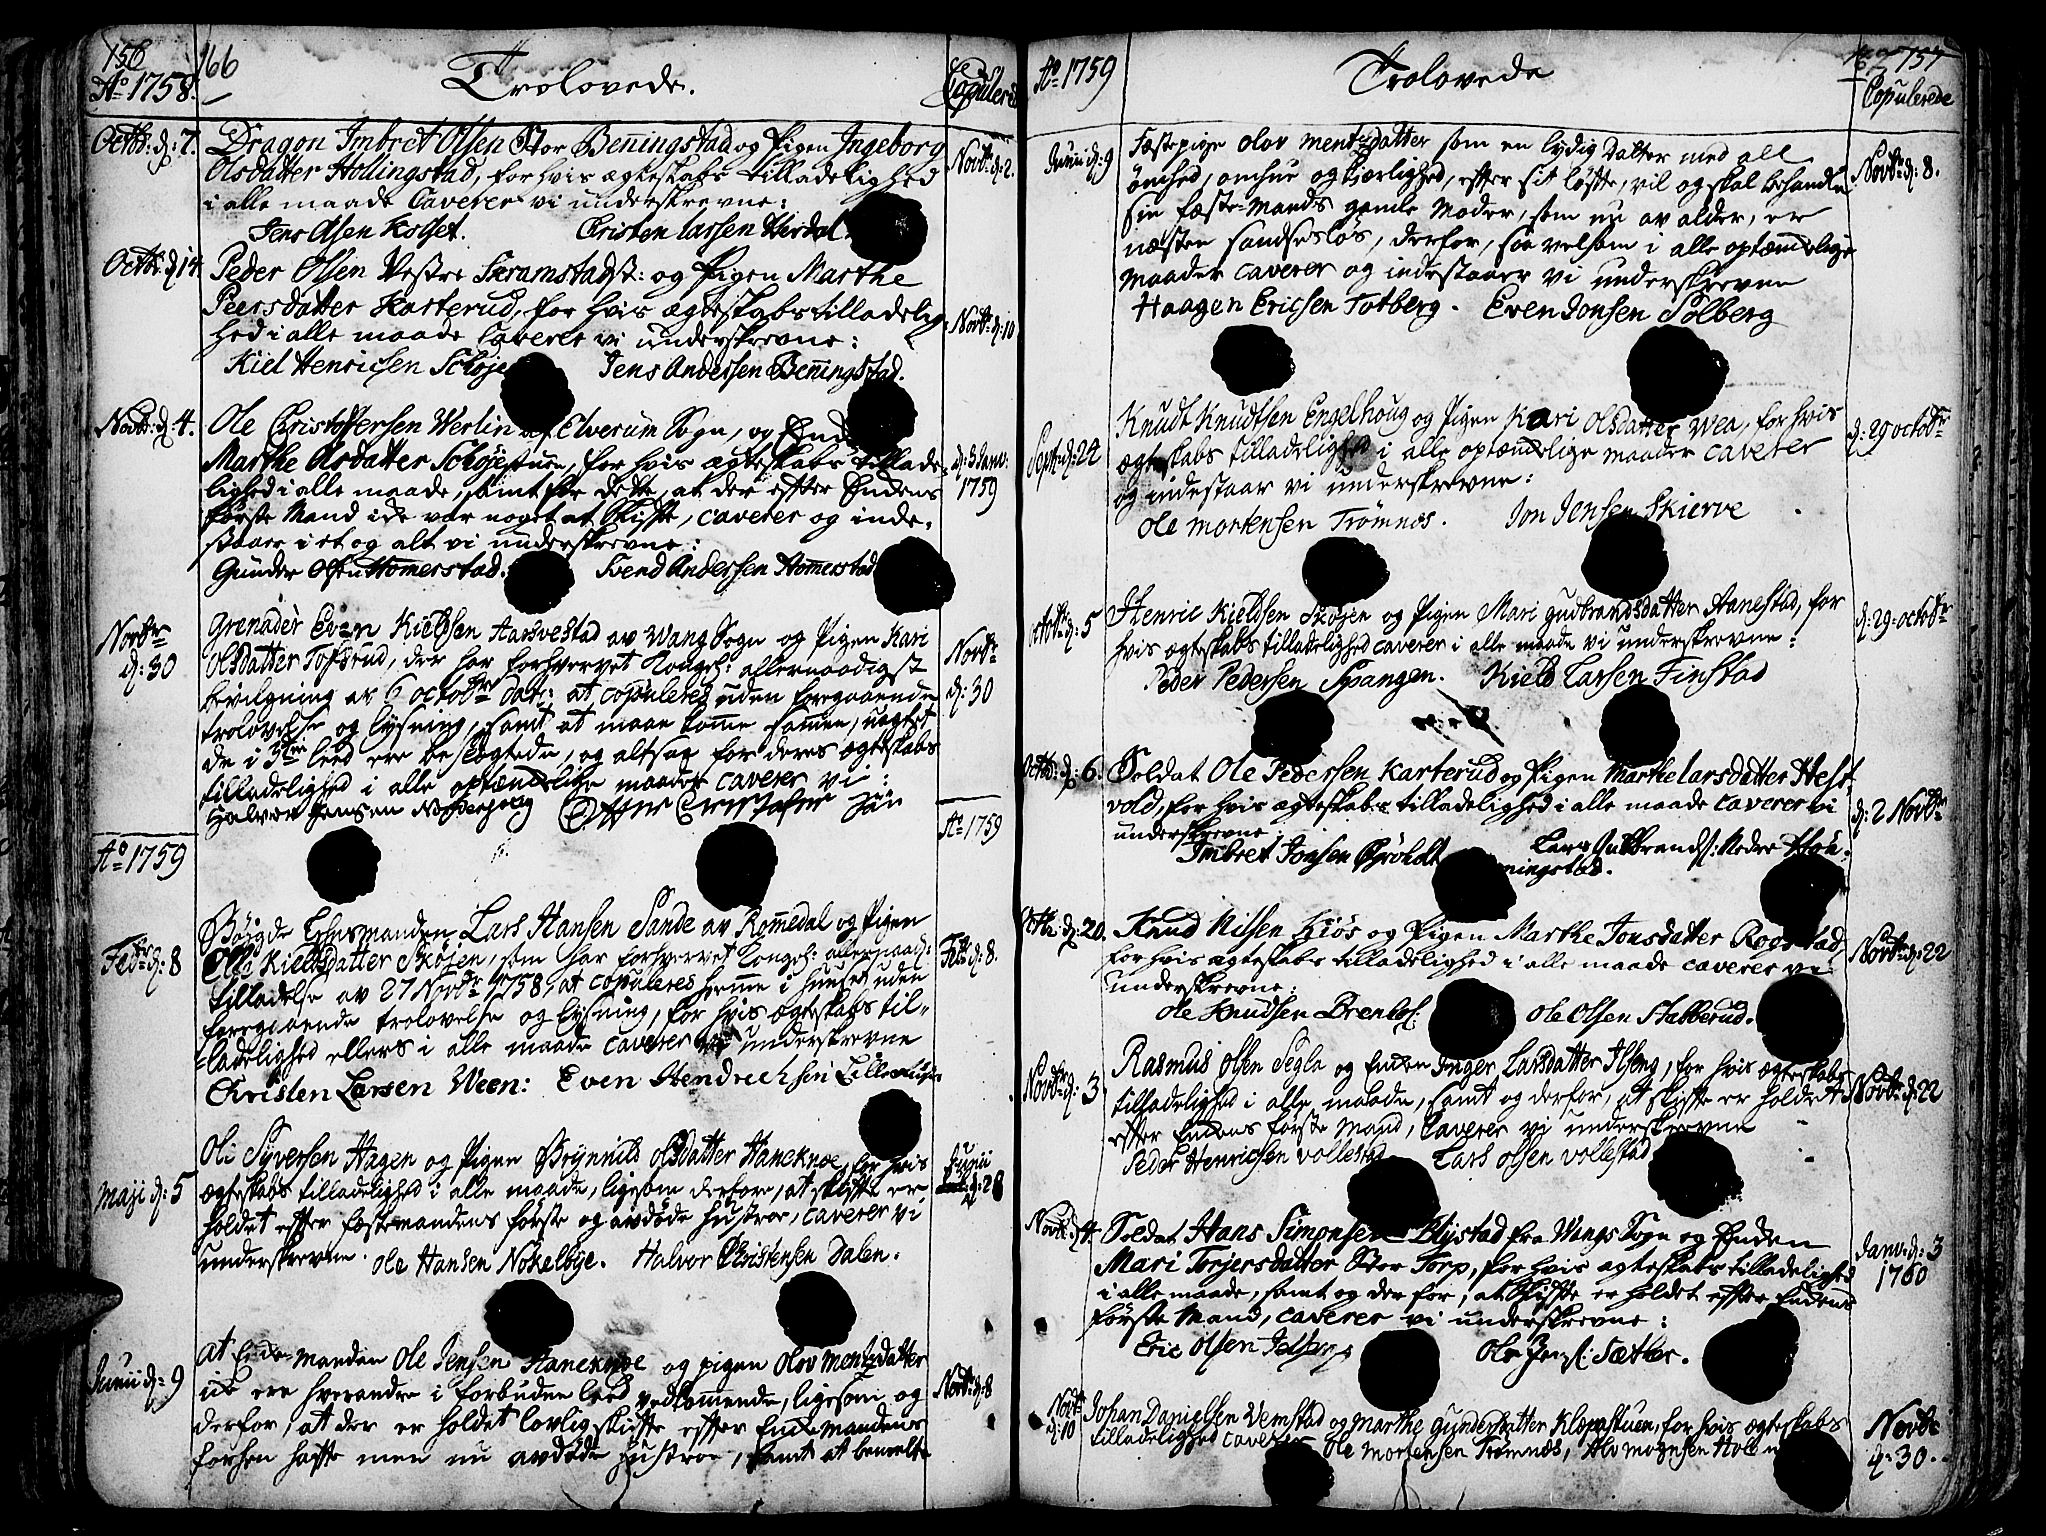 156
166
Ao 1758.
Trolovede.
Copulerede
Octbr: d: 7.
Dragon Imbret Olsen Stor Benningstad og Pigen Ingeborg
Olsdatter Hollingstad, for hvis ægteskabs tilladelighed
i alle maade Caverer vi underskrevne:
Jens Olsen Kolset. Christen Larsen Herdal.
Novbr: d: 2.
Octbr: d: 14
Peder Olsen Vestre Skramstad st: og Pigen Marthe
Peersdatter Karterud, for hvis ægteskabs tilladelig-
hed i alle maade Caverer vi underskrevne:
Kiel Henricsen Schøje Jens Andersen Benningstad.
Novbr: d: 10
Novbr: d: 4.
Ole Christophersen Werlin af Elverum Sogn, og Enken
Marthe Olsdatter Schøjestuen, for hvis ægteskabs tillade-
lighed i alle maade, samt for dette, at der efter Enkens
første Mand icke var noget at skifte, caverer og inde-
staaer i et og alt vi underskrevne:
Gunder Olsen Hommerstad. Svend Andersen Hommerstad
d: 3 Janv:
1759
Novbr
d: 30
Grenadèr Even Kieldsen Aarsvestad av Wang Sogn og Pigen Kari
Olsdatter Tofsrud, der har forhvervet Kongel: allernaadigst
bevilgning av 6 octobr dat: at copuleres uden foregaaende
trolovelse og lysning, samt at maae komme sammen, uagtet
de i 3die leed ere beslægtede, og altsaa for deres ægteskabs
tilladelighed i alle optænckelige maader caverer vi:
Halvor Jensen
Novbr
d: 30
Ao 1759
Ao 1759
Febr: d: 8
Bøigde Lehnsmanden Lars Hansen Sande av Rommedal og Pigen
Elli Kieldsdatter Skøjen, som har forhvervet Kongel: allernaad:
tilladelse av 27 Novbr 1758, at copuleres hjemme i huuset uden
foregaaende trolovelse og lysning, for hvis ægteskabs til-
ladelighed ellers i alle maade caverer vi underskrevne
Christen Larsen Ween: Even Hendrechsen
Febr: d: 8.
Maji d: 5
Ole Syversen Hagen og Pigen Brynnild Olsdatter Haneknoe, for hvis
ægteskabs tilladelighed i alle maade, ligesom derfore, at skifte er
holdet efter fæstemandens første og avdøde hustroe, caverer vi
underskrevne. Ole Hansen Nokelbye. Halvor Christensen Dalen.
Junii
d: 28
Junii d: 9
At Enke-manden Ole Jensen Haneknoe og pigen Olov Mentzdatter
ei ere hverandre i forbuden leed vedkommende, ligesom og
derfor, at der er holdet lovlig skifte efter Enke-mandens
forhen hafte men nu avdøde hustroe, samt at bemelte
Novbr: d: 8
Ao 1759
Trolovede
157
Copulerede
Junii d: 9
Fæstepige Olov Mentzdatter som en lydig datter med all
ømhed, omhue og kierlighed, efter sit løfte, vil og skal behandle
sin fæste-Mands gamle Moder, som nu av alder, er
næsten sandsesløs, derfor, saavelsom i alle optænckelige
maader caverer og indestaaer vi underskrevne
Haagen Ericsen Totberg. Even Jonsen Solberg
Novbr: d: 8.
Sept: d: 22
Knudt Knudtsen Engelhoug og Pigen Kari Olsdatter Wea, for hvis
ægteskabs tilladelighed i alle optænckelige maader caverer
og indestaar vi underskrevne:
Ole Mortensen Trømnæs. Jon Jensen Skierve
d: 29 octobr
octobr d: 5
Henric Kieldsen Skøjen og Pigen Mari Gudbrandsdatter Aanestad, for
hvis ægteskabs tilladelighed caverer i alle maade vi underskrevne:
Peder Pedersen Spangen. Kield Larsen Finstad
d: 29 octobr
Octob: d: 6.
Soldat Ole Pedersen Karterud og Pigen Marthe Larsdatter Helst-
vold, for hvis ægteskabs tilladelighed i alle maade caverer vi
underskrevne
Imbret Jonsen Lars Gulbrands: Nedre Høu-
ningstad.
d: 2 Novbr
Octb: d: 20.
Knud Nilsen Kiøs og Pigen Marthe Jonsdatter Rogstad,
for hvis ægteskabs tilladelighed i alle maade caverer vi
underskrevne:
Ole Knudsen Ole Olsen Stabberud.
Novbr: d: 22
Novbr: d: 3
Rasmus Olsen Segla og Enken Inger Larsdatter Ilseng, for hvis ægteskabs
tilladelighed i alle maade, samt og derfor, at skifte er holdet
efter Enkens første Mand, Caverer vi underskrevne
Peder Henricsen Vollestad Lars Olsen Vollestad
Novbr: d: 22
Novbr: d: 4.
Soldat Hans Simonsen Blystad fra Wangs Sogn og Enken
Mari Torjersdatter Stor Torp, for hvis ægteskabs tilladelighed
i alle maade, samt og der for, at skifte er holdet efter Enkens
første Mand, caverer vi underskrevne:
Eric Olsen Ole Jens: Sætter.
Janv: d: 3
1760
Novbr
d: 10
Johan Danielsen Vemstad og Marthe Gundersdatter Klopastuen, for hvis ægteskabs
tilladelighed caverer Ole Mortensen Trømnæs,
Novbr
d: 30.